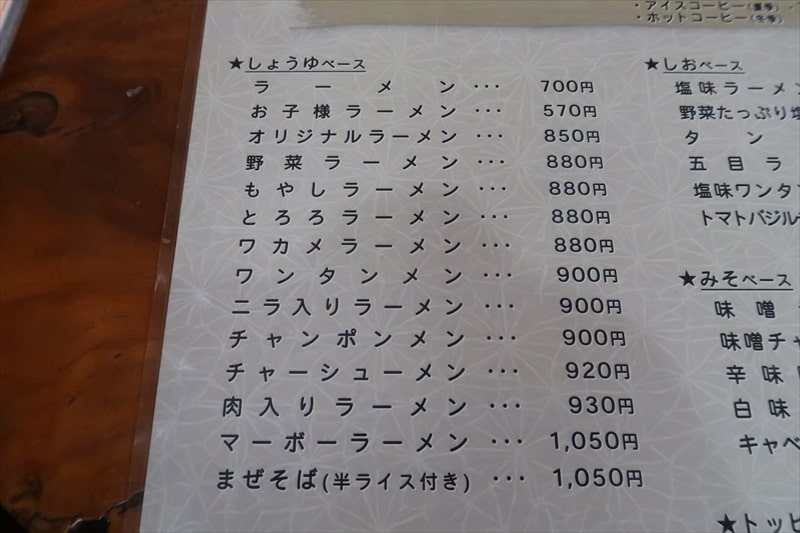 ・アイスコーヒー(夏季)
・ホットコーヒー(冬季)
★しょうゆベース
ラーメン・・・ 700円
お子様ラーメン・・・ 570円
オリジナルラーメン・・・ 850円
野菜ラーメン・・・ 880円
もやしラーメン・・・ 880円
とろろラーメン・・・ 880円
ワカメラーメン・・・ 880円
ワンタンメン・・・ 900円
ニラ入りラーメン・・・ 900円
チャンポンメン・・・ 900円
チャーシューメン・・・ 920円
肉入りラーメン・・・ 930円
マーボーラーメン・・・ 1,050円
まぜそば(半ライス付き)・・・ 1,050円
★しおベース
塩味ラーメン
野菜たっぷり塩
タン
五目ラ
塩味ワンタン
トマトバジル
★みそベース
味噌
味噌チャ
辛味
白味
キャベ
★トッピ